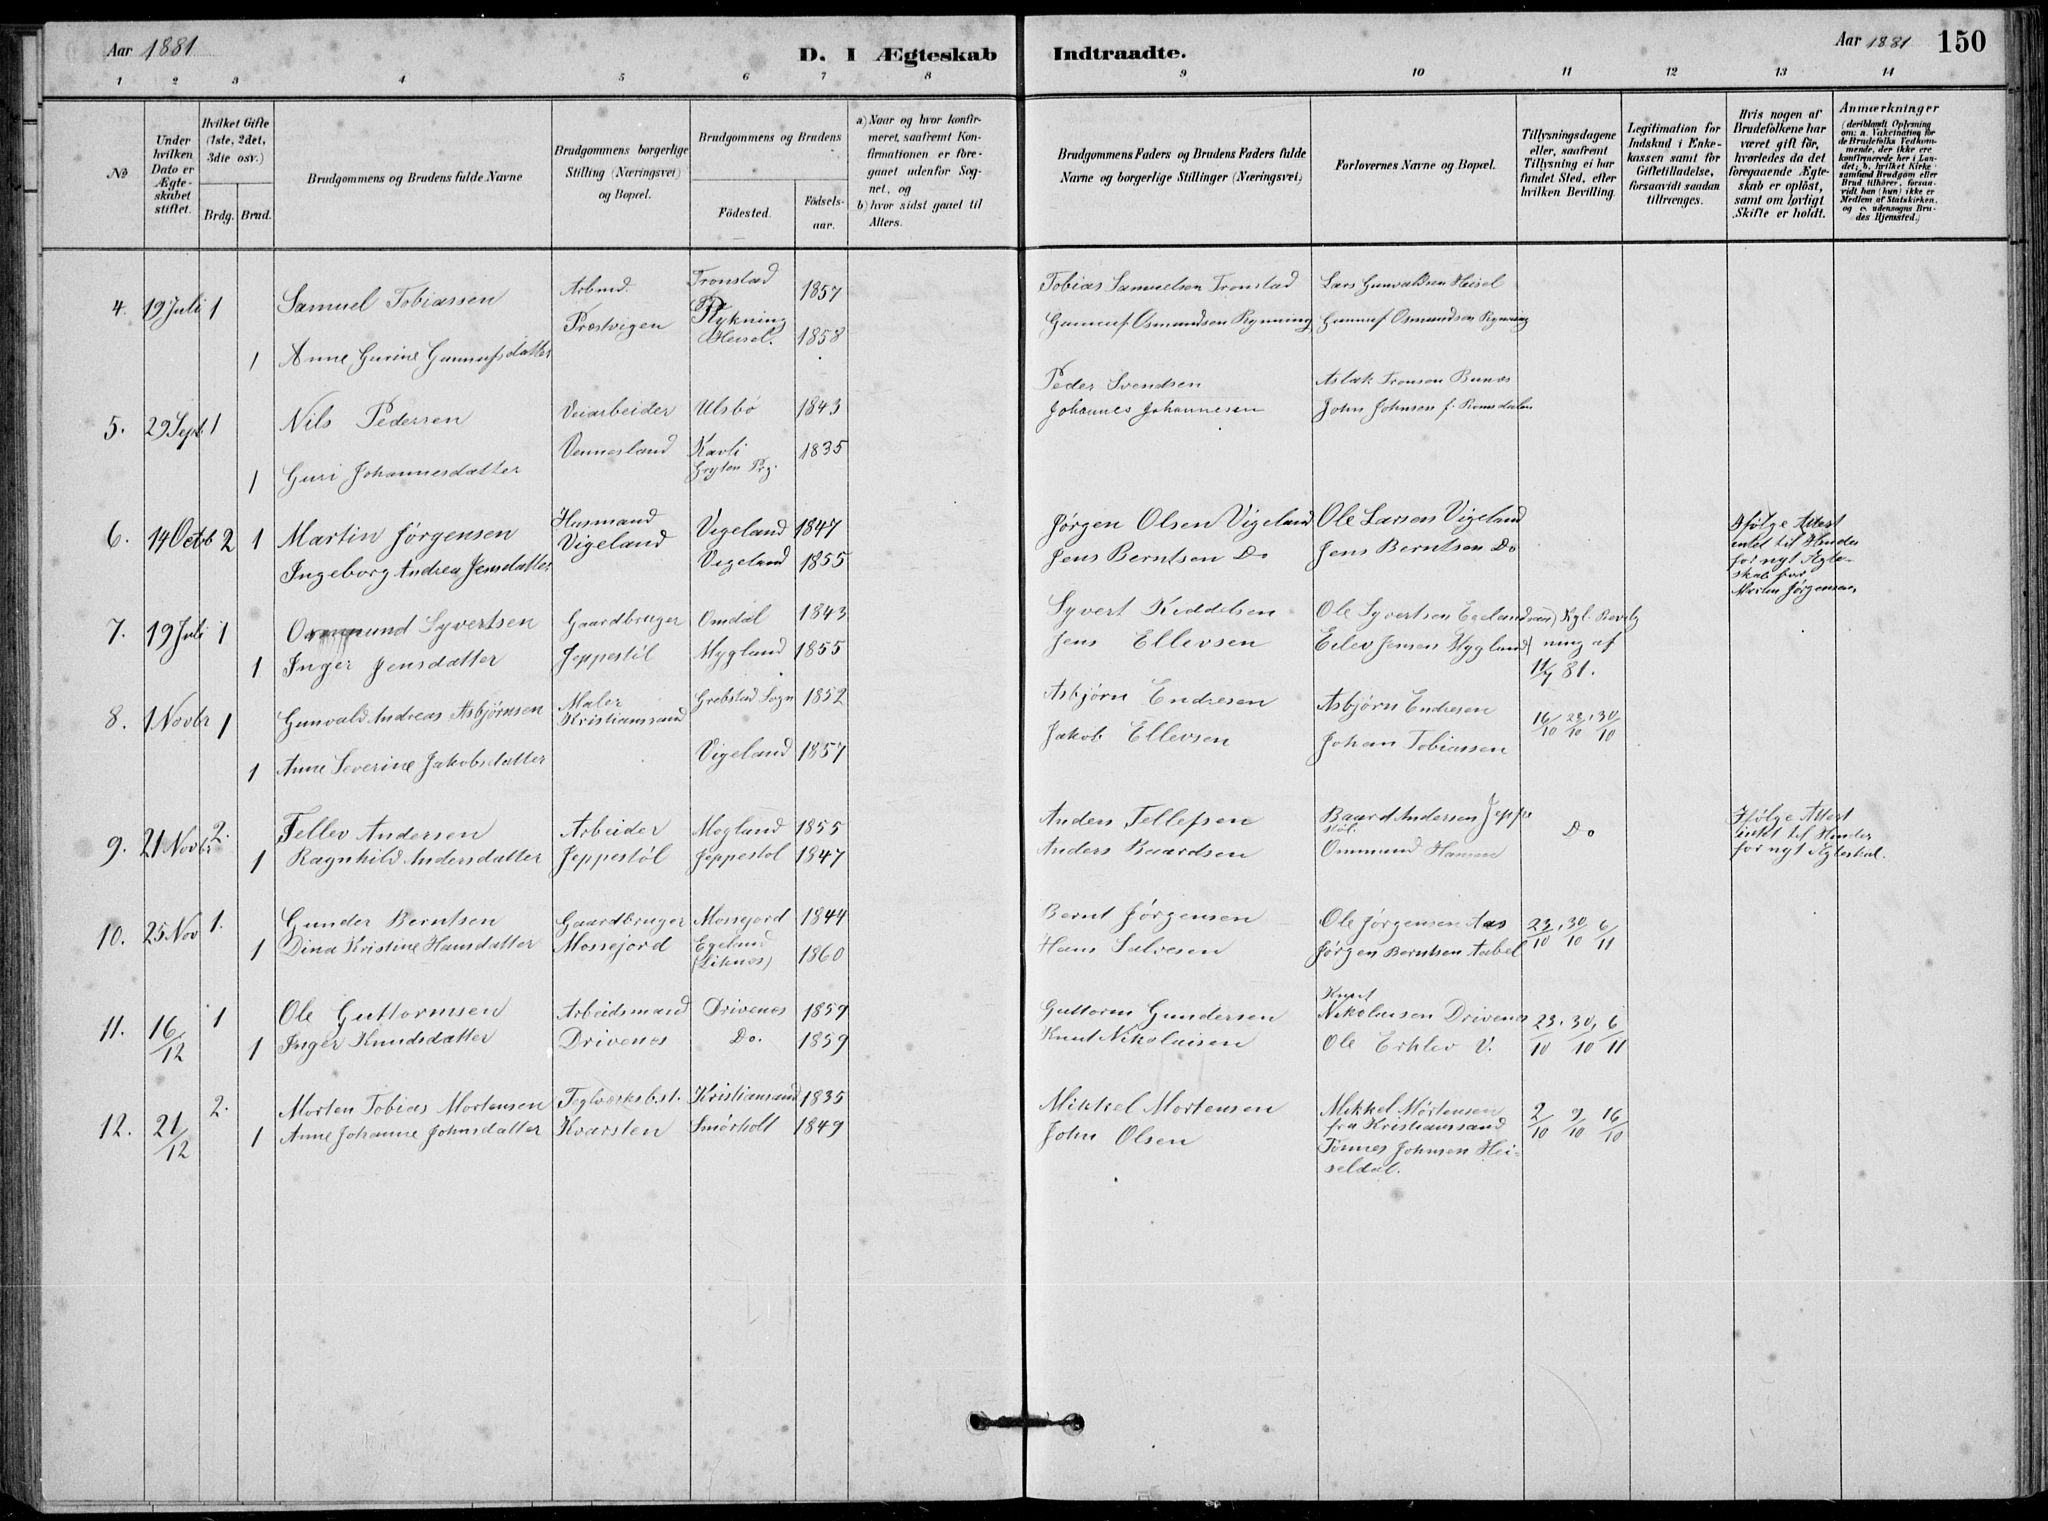 Aar 1881
D. I Ægteskab Indtraadte.
Aar 1881 150
1 2 3 4 5 6 7 8 9 10 11 12 13 14
No
Under hvilken Dato er Ægteskabet stiftet.
Hvilket Gifte (1ste, 2det, 3die osv.)
Brdg. Brud.
Brudgommens og Brudens fulde Navne
Brudgommens borgerlige Stilling (Næringsvei) og Bopæl.
Brudgommens og Brudens
Födested.
Födsels-aar.
a) Naar og hvor konfirmeret, saafremt Konfirmationen er foregaaet udenfor Sognet, og
b) hvor sidst gaaet til Alters.
Brudgommens Faders og Brudens Faders fulde Navne og borgerlige Stillinger (Næringsvei)
Forlovernes Navne og Bopæl.
Tillysningsdagene eller, saafremt Tillysning ei har fundet Sted, efter hvilken Bevilling.
Legitimation for Indskud i Enkekassen samt for Giftetilladelse, forsaavidt saadan tiltrænges.
Hvis nogen af Brudefolkene har været gift för, hvorledes da det foregaaende Ægteskab er oplöst, samt om lovligt Skifte er holdt.
Anmærkninger (deriblandt Oplysning om: a. Vakcination for de Brudefolks Vedkommende, der ikke ere konfirmerede her i Landet; b. hvilket Kirkesamfund Brudgom eller Brud tilhörer, forsaavidt han (hun) ikke er Medlem af Statskirken, og c. udensogns Brudes Hjemsted.)
4. 19 Juli 1 Samuel Tobiassen Arbmd. Tronstad 1857 Tobias Samuelsen Tronstad Lars Gunvaldsen Heisel
Prestvigen Rykning
1 Anne Gurine Gunnufsdatter Heisel. 1858 Gunnuf Osmundsen Rynning Gunnuf Osmundsen Rynning
5. 29 Sept. 1 Nils Pedersen Veiarbeider Ulsbö 1843 Peder Svendsen Aslak Tronsen Bunæs
1 Guri Johannesdatter Vennesland Kavli 1835 Johannes Johannesen John Johnsen f. Romsdalen
Gryten Prg.
6. 14 Octb 2 1 Martin Jørgensen Husmand Vigeland 1847 Jørgen Olsen Vigeland Ole Larsen Vigeland Ifølge Attest
Ingeborg Andrea Jensdatter Vigeland Vigeland 1855 Jens Berntsen Do Jens Berntsen Do intet til Hinder
for nyt Ægte-
skab for
Martin Jørgensen
7. 19 Juli 1 Ommund Syvertsen Gaardbruger Omdal 1843 Syvert Keddelsen Ole Syvertsen Egeland Kgl. Bevilg
1 Inger Jensdatter Jeppestöl Mygland 1855 Jens Ellevsen Eilev Jensen Mygland ning af
11/7 81.
8. 1 Novbr 1 Gunvald Andreas Asbjørnsen Maler Grebstad Sogn 1852 Asbjørn Endresen Asbjørn Endresen 16/10 23/10 30/10
Kristianssand
1 Anne Severine Jakobsdatter Vigeland 1857 Jakob Ellevsen Johan Tobiassen
9. 21 Novbr 2. Tellev Andersen Arbeider Mogland 1855 Anders Tellefsen Baard Andersen Jeppe Do Ifølge Attest
stöl. intet til Hinder
1 Ragnhild Andersdatter Jeppestöl Jeppestol 1847 Anders Baardsen Ommund Hansen for nyt Ægteskab.
10. 25 Nov 1. Gunder Berntsen Gaardbruger Mossejord 1844 Bernt Jørgensen Ole Jørgensen Aas 23/10 30/10 6/11
1 Dina Kristine Hansdatter Mossejord Egeland 1860 Hans Salvesen Jørgen Berntsen Aabel
(Liknes)
11. 16/12 1 Ole Guttormsen Arbeidsmand Drivenes 1859 Guttorm Gundersen Knut
Nikolaisen Drivenes 23/10 30/10 6/11
1 Inger Knudsdatter Drivenes Do. 1859 Knut Nikolaisen Ole Erklev V.
12. 21/12 2. Morten Tobias Mortensen Teglværksbest. Kristiansand 1835 Mikkel Mortensen Mikkel Mortensen 2/10 9/10 16/10
fra Kristianssand
1 Anne Johanne Johnsdatter Kvarsten Smörholt 1849 John Olsen Tønnes Johnsen Hei-
seldal.